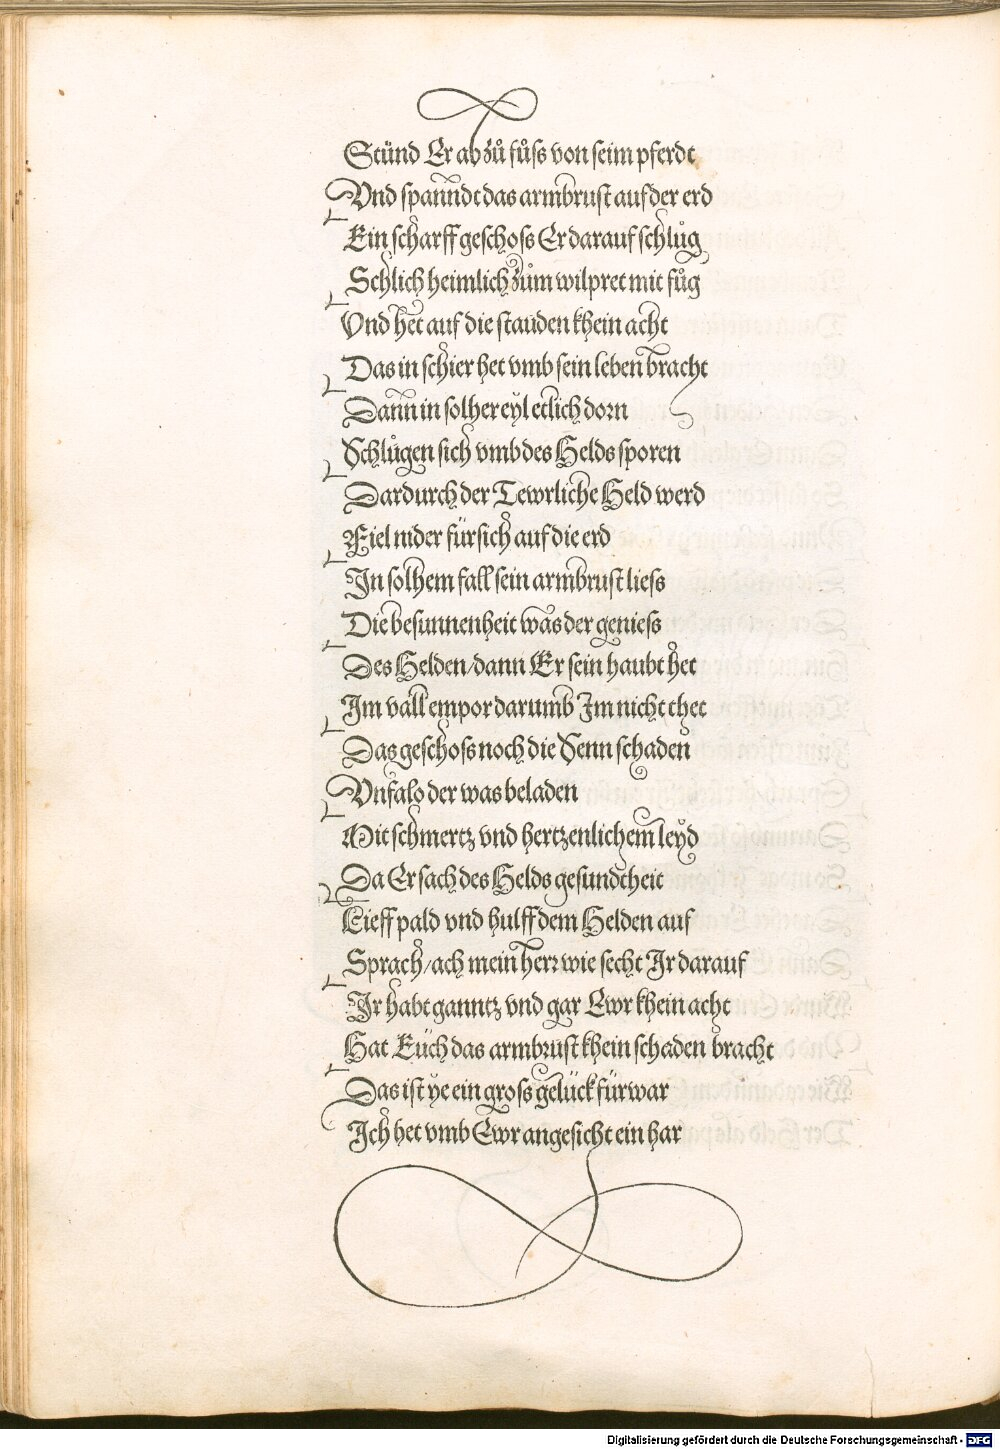 Stůnd Er ab zů fůss von seim pferdt
Vnd spanndt das armbrust auf der erd
Ein scharff geschoss Er darauf schlůg
Schlich heimlich zům wilpret mit fůg
Vnd het auf die stauden khein acht
Das in schier het vmb sein leben bracht
Dann in solher eyl etlich dorn
Schlůgen sich vmb des Helds sporen
Dardurch der Tewrliche Held werd
Fiel nider für sich auf die erd
In solhem fall sein armbrust liess
Die besunnenheit was der geniess
Des Helden/dann Er sein haubt het
Im vall empor darumb Im nicht thet
Das geschoss noch die Senn schaden
Vnfalo der was beladen
Mit schmertz vnd hertzenlichem leyd
Da Er sach des Helds gesundtheit
Lieff pald vnd hulff dem Helden auf
Sprach/ach mein herr wie secht Ir darauf
Ir habt ganntz vnd gar Ewr khein acht
Hat Eüch das armbrust khein schaden bracht
Das ist ye ein gross gelück fürwar
Ich het vmb Ewr angesicht ein har
Digitalisierung gefördert durch die Deutsche Forschungsgemeinschaft - DFG